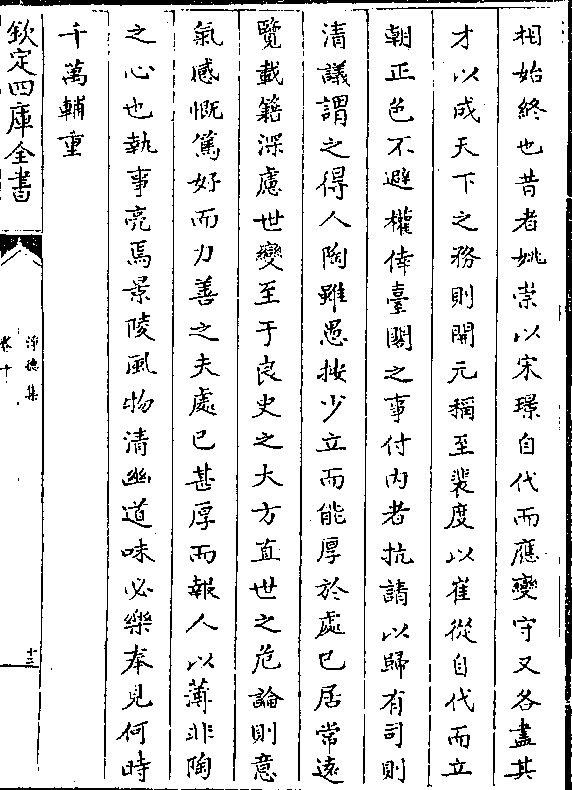 相始終也昔者姚崇以宋璟自代而應變守又各盡其
才以成天下之務則開元稱至裴度以崔從自代而立
朝正色不避權倖臺閣之事付內者抗請以歸有司則
清議謂之得人陶雖愚拙少立而能厚於處已居常遠
覽載籍深慮世變至于良史之大方直世之危論則意
氣感慨篤好而力善之夫處已甚厚而報人以薄非陶
之心也執事亮焉景陵風物清幽道味必樂奉見何時
千萬輔重
欽定四庫全書
淨德集
卷十
十三